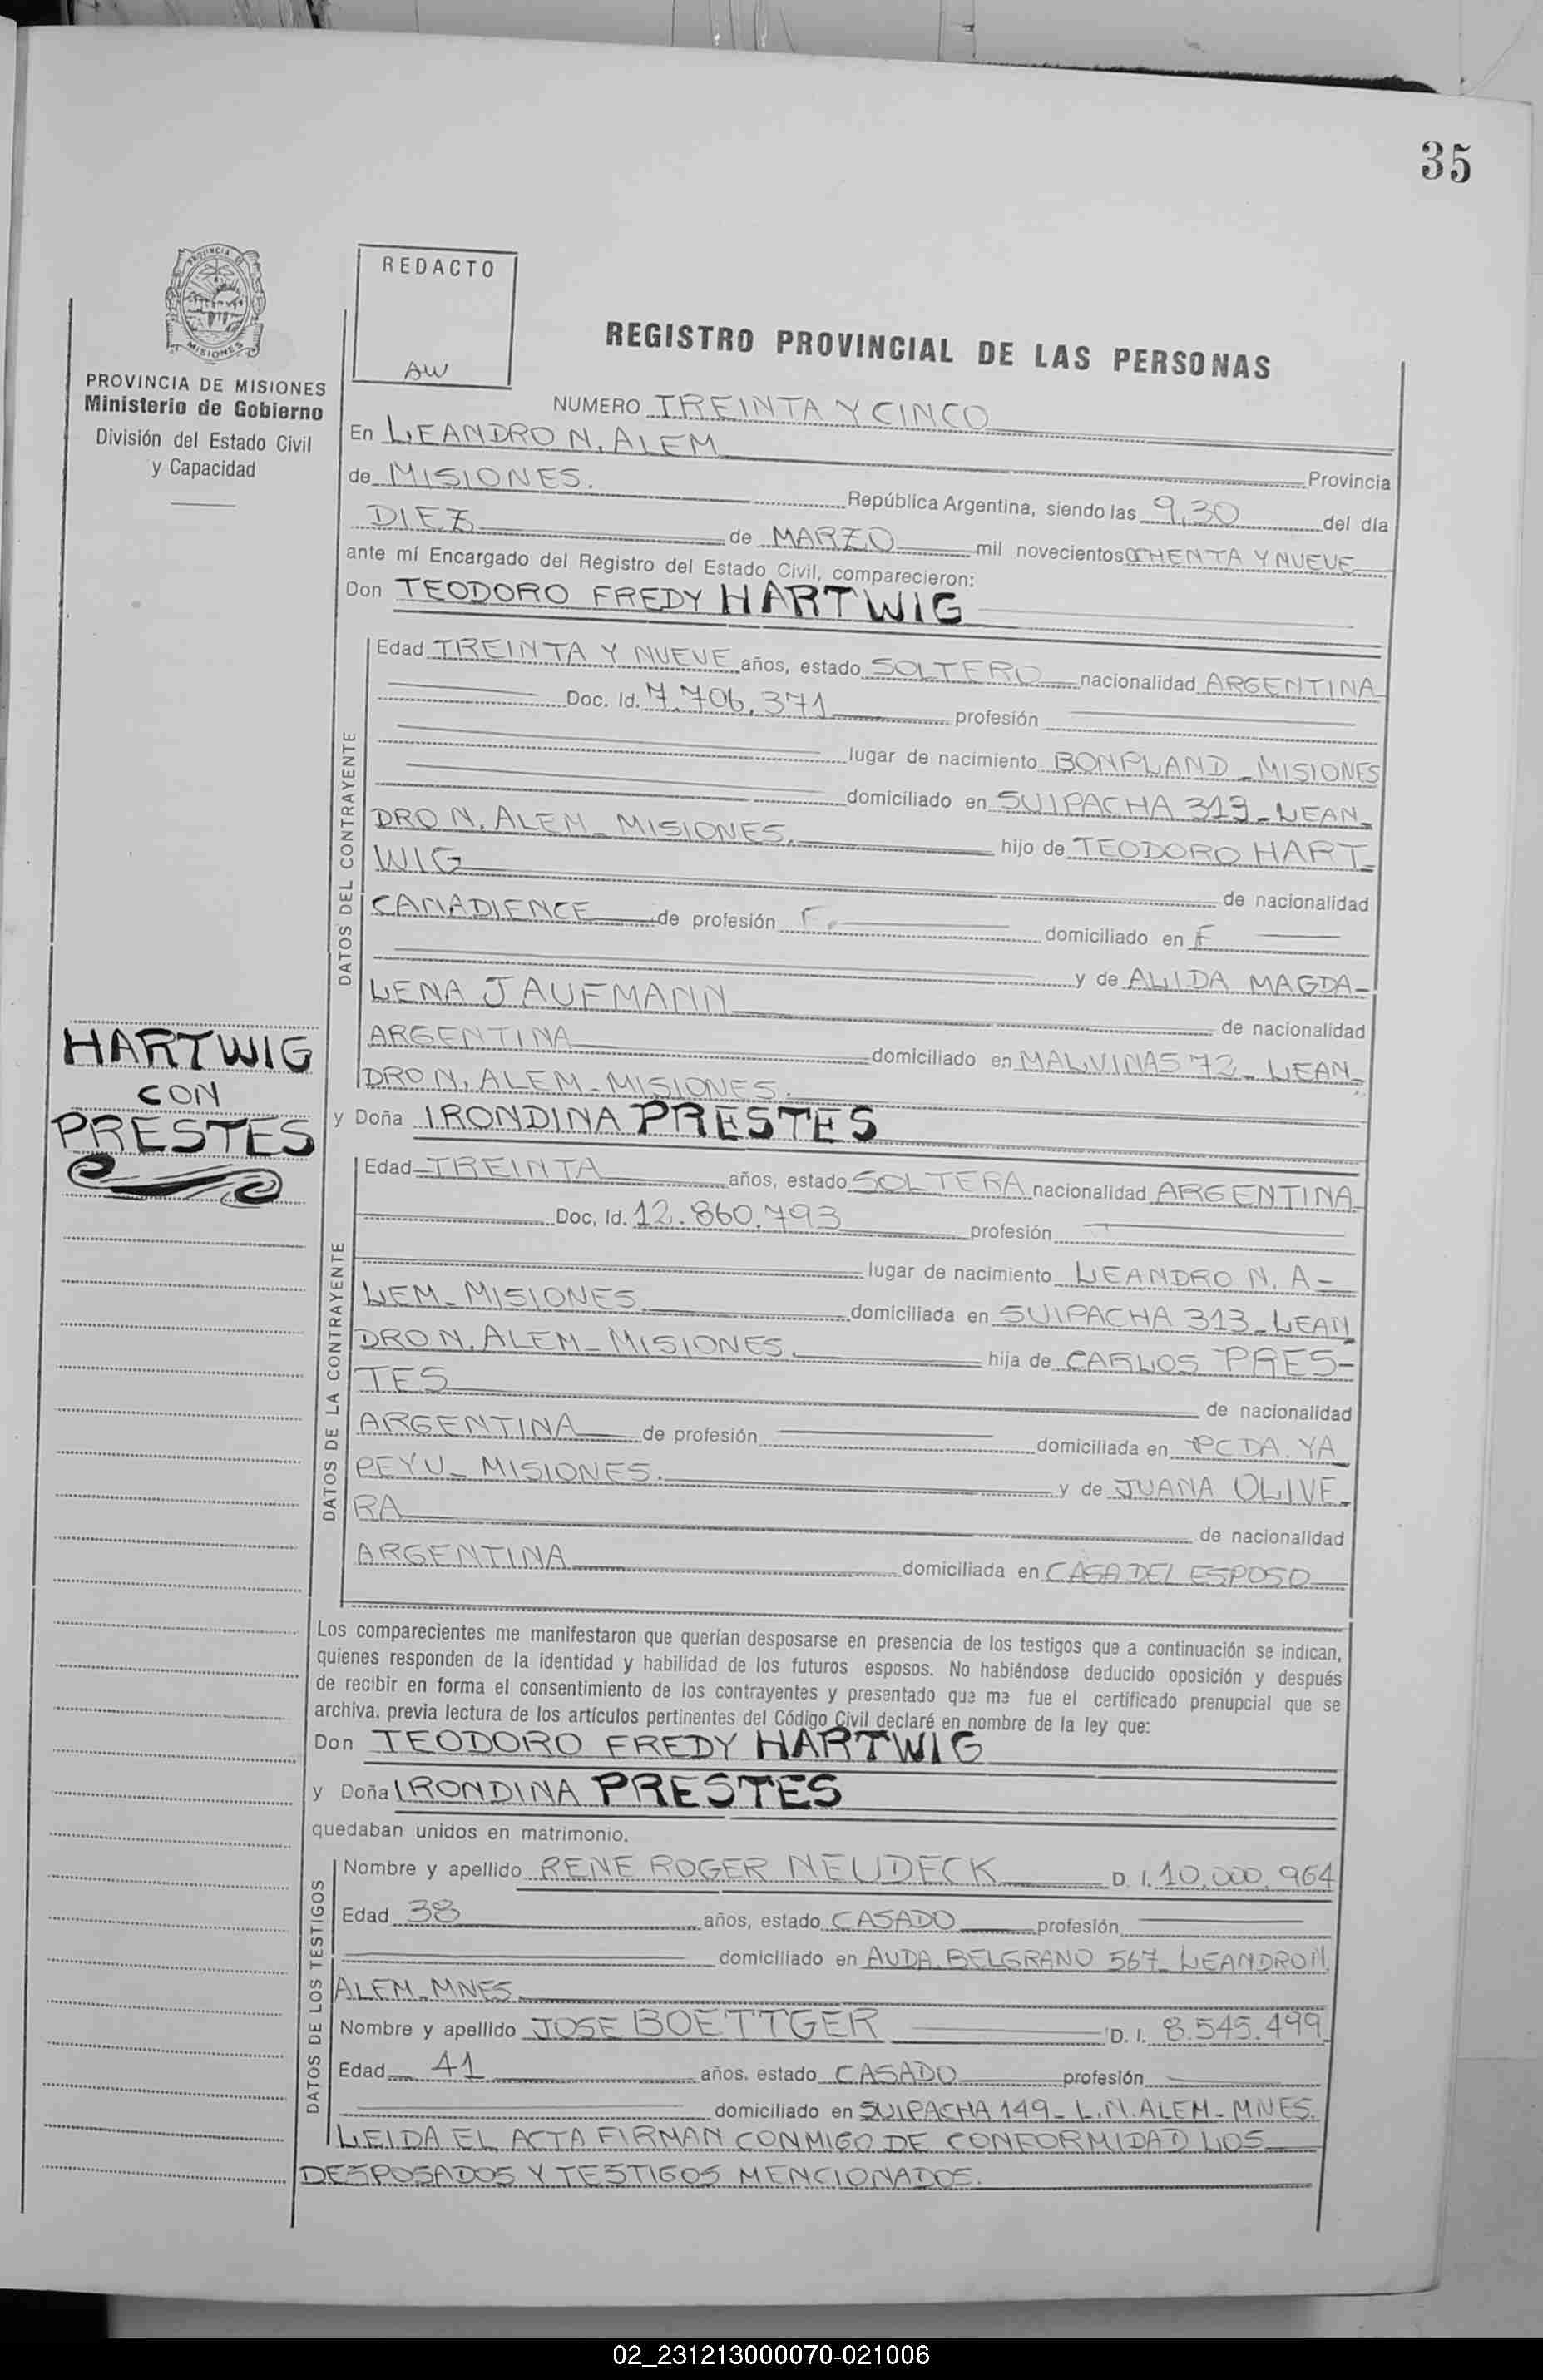 35
PROVINCIA DE
MISIONES
PROVINCIA DE MISIONES
Ministerio de Gobierno
División del Estado Civil
y Capacidad
REDACTO
AW
REGISTRO PROVINCIAL DE LAS PERSONAS
NUMERO TREINTA Y CINCO
En LEANDRO N. ALEM Provincia
de MISIONES. República Argentina, siendo las 9,30 del día
DIEZ de MARZO mil novecientos OCHENTA Y NUEVE
ante mí Encargado del Registro del Estado Civil, comparecieron:
Don TEODORO FREDY HARTWIG
DATOS DEL CONTRAYENTE
Edad TREINTA Y NUEVE años, estado SOLTERO nacionalidad ARGENTINA
Doc. Id. 7.706.371 profesión
lugar de nacimiento BONPLAND - MISIONES
domiciliado en SUIPACHA 313 - LEAN
DRO N. ALEM - MISIONES. hijo de TEODORO HART-
WIG de nacionalidad
CANADIENCE de profesión F. domiciliado en F
y de ALIDA MAGDA-
LENA JAUFMANN de nacionalidad
ARGENTINA domiciliado en MALVINAS 72 - LEAN
DRO N. ALEM - MISIONES.
HARTWIG
CON
PRESTES
y Doña IRONDINA PRESTES
DATOS DE LA CONTRAYENTE
Edad TREINTA años, estado SOLTERA nacionalidad ARGENTINA
Doc. Id. 12.860.793 profesión
lugar de nacimiento LEANDRO N. A-
LEM - MISIONES. domiciliada en SUIPACHA 313 - LEAN
DRO N. ALEM - MISIONES. hija de CARLOS PRES-
TES de nacionalidad
ARGENTINA de profesión domiciliada en PCTDA. YA
PEYU - MISIONES. y de JUANA OLIVE-
RA de nacionalidad
ARGENTINA domiciliada en CASA DEL ESPOSO
Los comparecientes me manifestaron que querían desposarse en presencia de los testigos que a continuación se indican,
quienes responden de la identidad y habilidad de los futuros esposos. No habiéndose deducido oposición y después
de recibir en forma el consentimiento de los contrayentes y presentado que me fue el certificado prenupcial que se
archiva. previa lectura de los artículos pertinentes del Código Civil declaré en nombre de la ley que:
Don TEODORO FREDY HARTWIG
y Doña IRONDINA PRESTES
quedaban unidos en matrimonio.
DATOS DE LOS TESTIGOS
Nombre y apellido RENE ROGER NEUDECK D. I. 10.000.964
Edad 38 años, estado CASADO profesión
domiciliado en AVDA. BELGRANO 567 - LEANDRO N.
ALEM - MNES.
Nombre y apellido JOSE BOETTGER D. I. 8.545.499
Edad 41 años, estado CASADO profesión
domiciliado en SUIPACHA 149 - L.N. ALEM - MNES.
LEIDA EL ACTA FIRMAN CONMIGO DE CONFORMIDAD LOS
DESPOSADOS Y TESTIGOS MENCIONADOS.
02_231213000070-021006